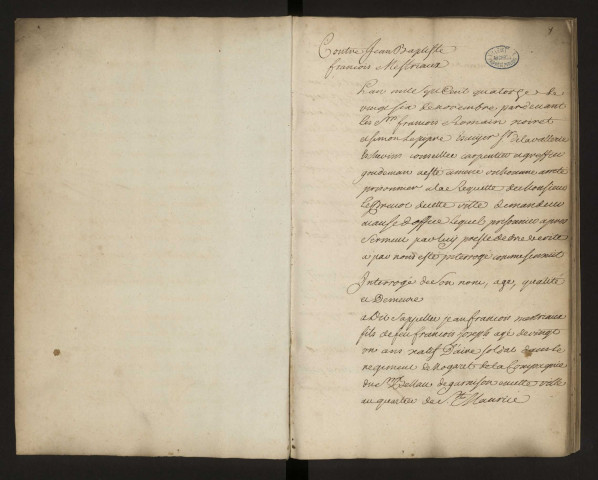 Contre Jean Baptiste
francois Mestriaux
L'an mille sept Cent quatorze le
vingt six de novembre pardevant
les Srs francois Romain noiret
et simon Lapipre Escuyer Sr de lavallerie
conseiller
amené un homme areté
prisonnier a la Requette de Monsieur
Le Prevot de cette ville demandeur
a cause d'office lequel prisonnier apres
serment par luy presté de dire verité
a par nous esté interrogé comme s'ensuit
Interrogé de son nom, age, qualité
et Demeure
a Dit s'appeller jean francois mestriaux
fils de feu francois joseph agé de vingt
un ans natif D'aire soldat dans le
regiment de Nogaret de la Compagnie
du Sr de garnison en cette ville
au quartier de St Maurice